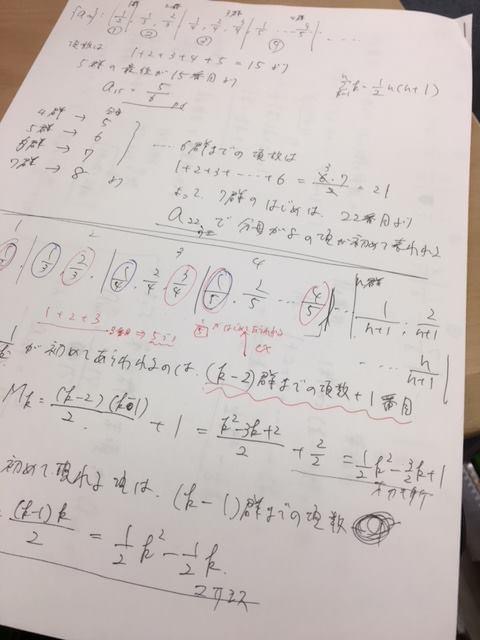 {an}: | 1/2 | 1/3, 2/3 | 1/4, 2/4, 3/4 | 1/5 … 4/5 | …
① ② ③ ④
項数は 1+2+3+4+5=15 より
5群の最後が15番目より
a15 = 5/6
Σk=½n(n+1)
4群 → 5
5群 → 6
6群 → 7
7群 → 8 より
…6群までの項数は
1+2+3+…+6 = 6・7/2 = 21
よって、7群のはじめは、22番目より
a22 で分母が8の項が初めて表れる
1 2 3 4 n群
| 1/3, 2/3, | 1/4, 2/4, 3/4 | 1/5, 2/5 … 4/5 | … | 1/n+1, 2/n+1
… n/n+1 |
1+2+3
が初めてあらわれるのは、(k-2)群までの項数+1番目
Mk = (k-2)(k-1)/2 + 1 = k²-3k+2/2 + 2/2 = ½k² - 3/2k + 1
初めて現れる項は、(k-1)群までの項数
= (k-1)k/2 = ½k² - ½k